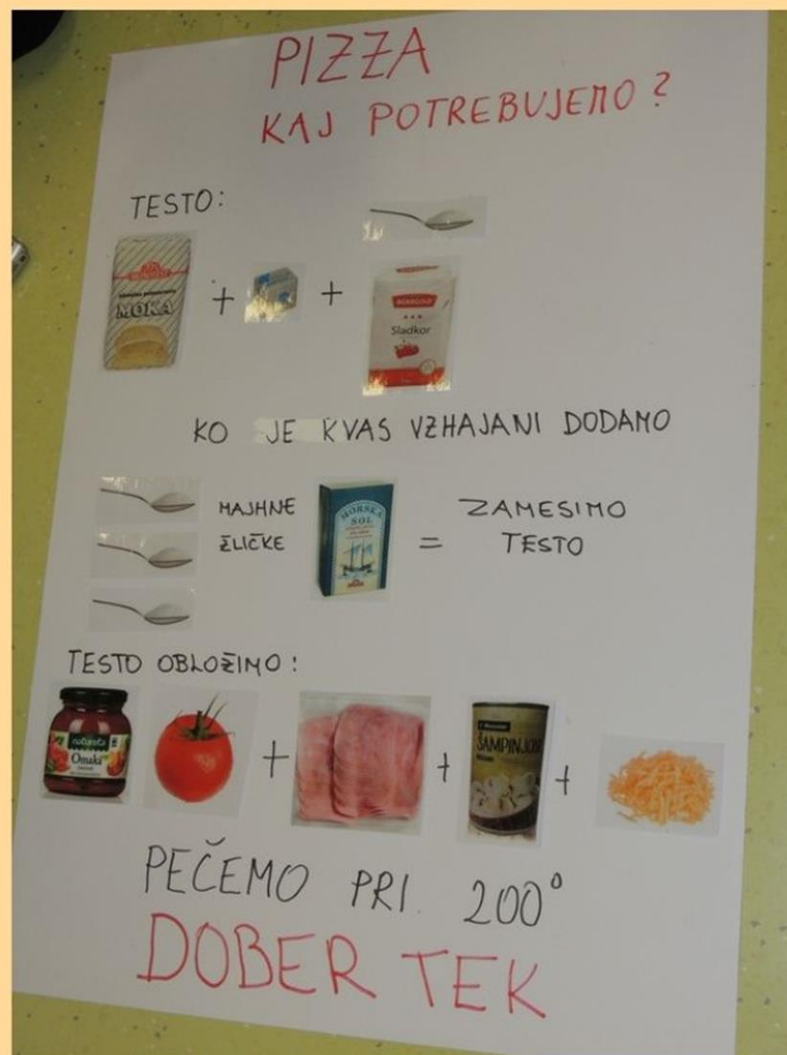 PIZZA
KAJ POTREBUJEMO?
TESTO:
MOKA
Sladkor
KO JE KVAS VZHAJANI DODAMO
MAJHNE
ŽLIČKE
MORSKA
SOL
= ZAMESIMO
TESTO
TESTO OBLOŽIMO:
natureta
Omaka
ŠAMPINJONI
+ + +
PEČEMO PRI 200°
DOBER TEK